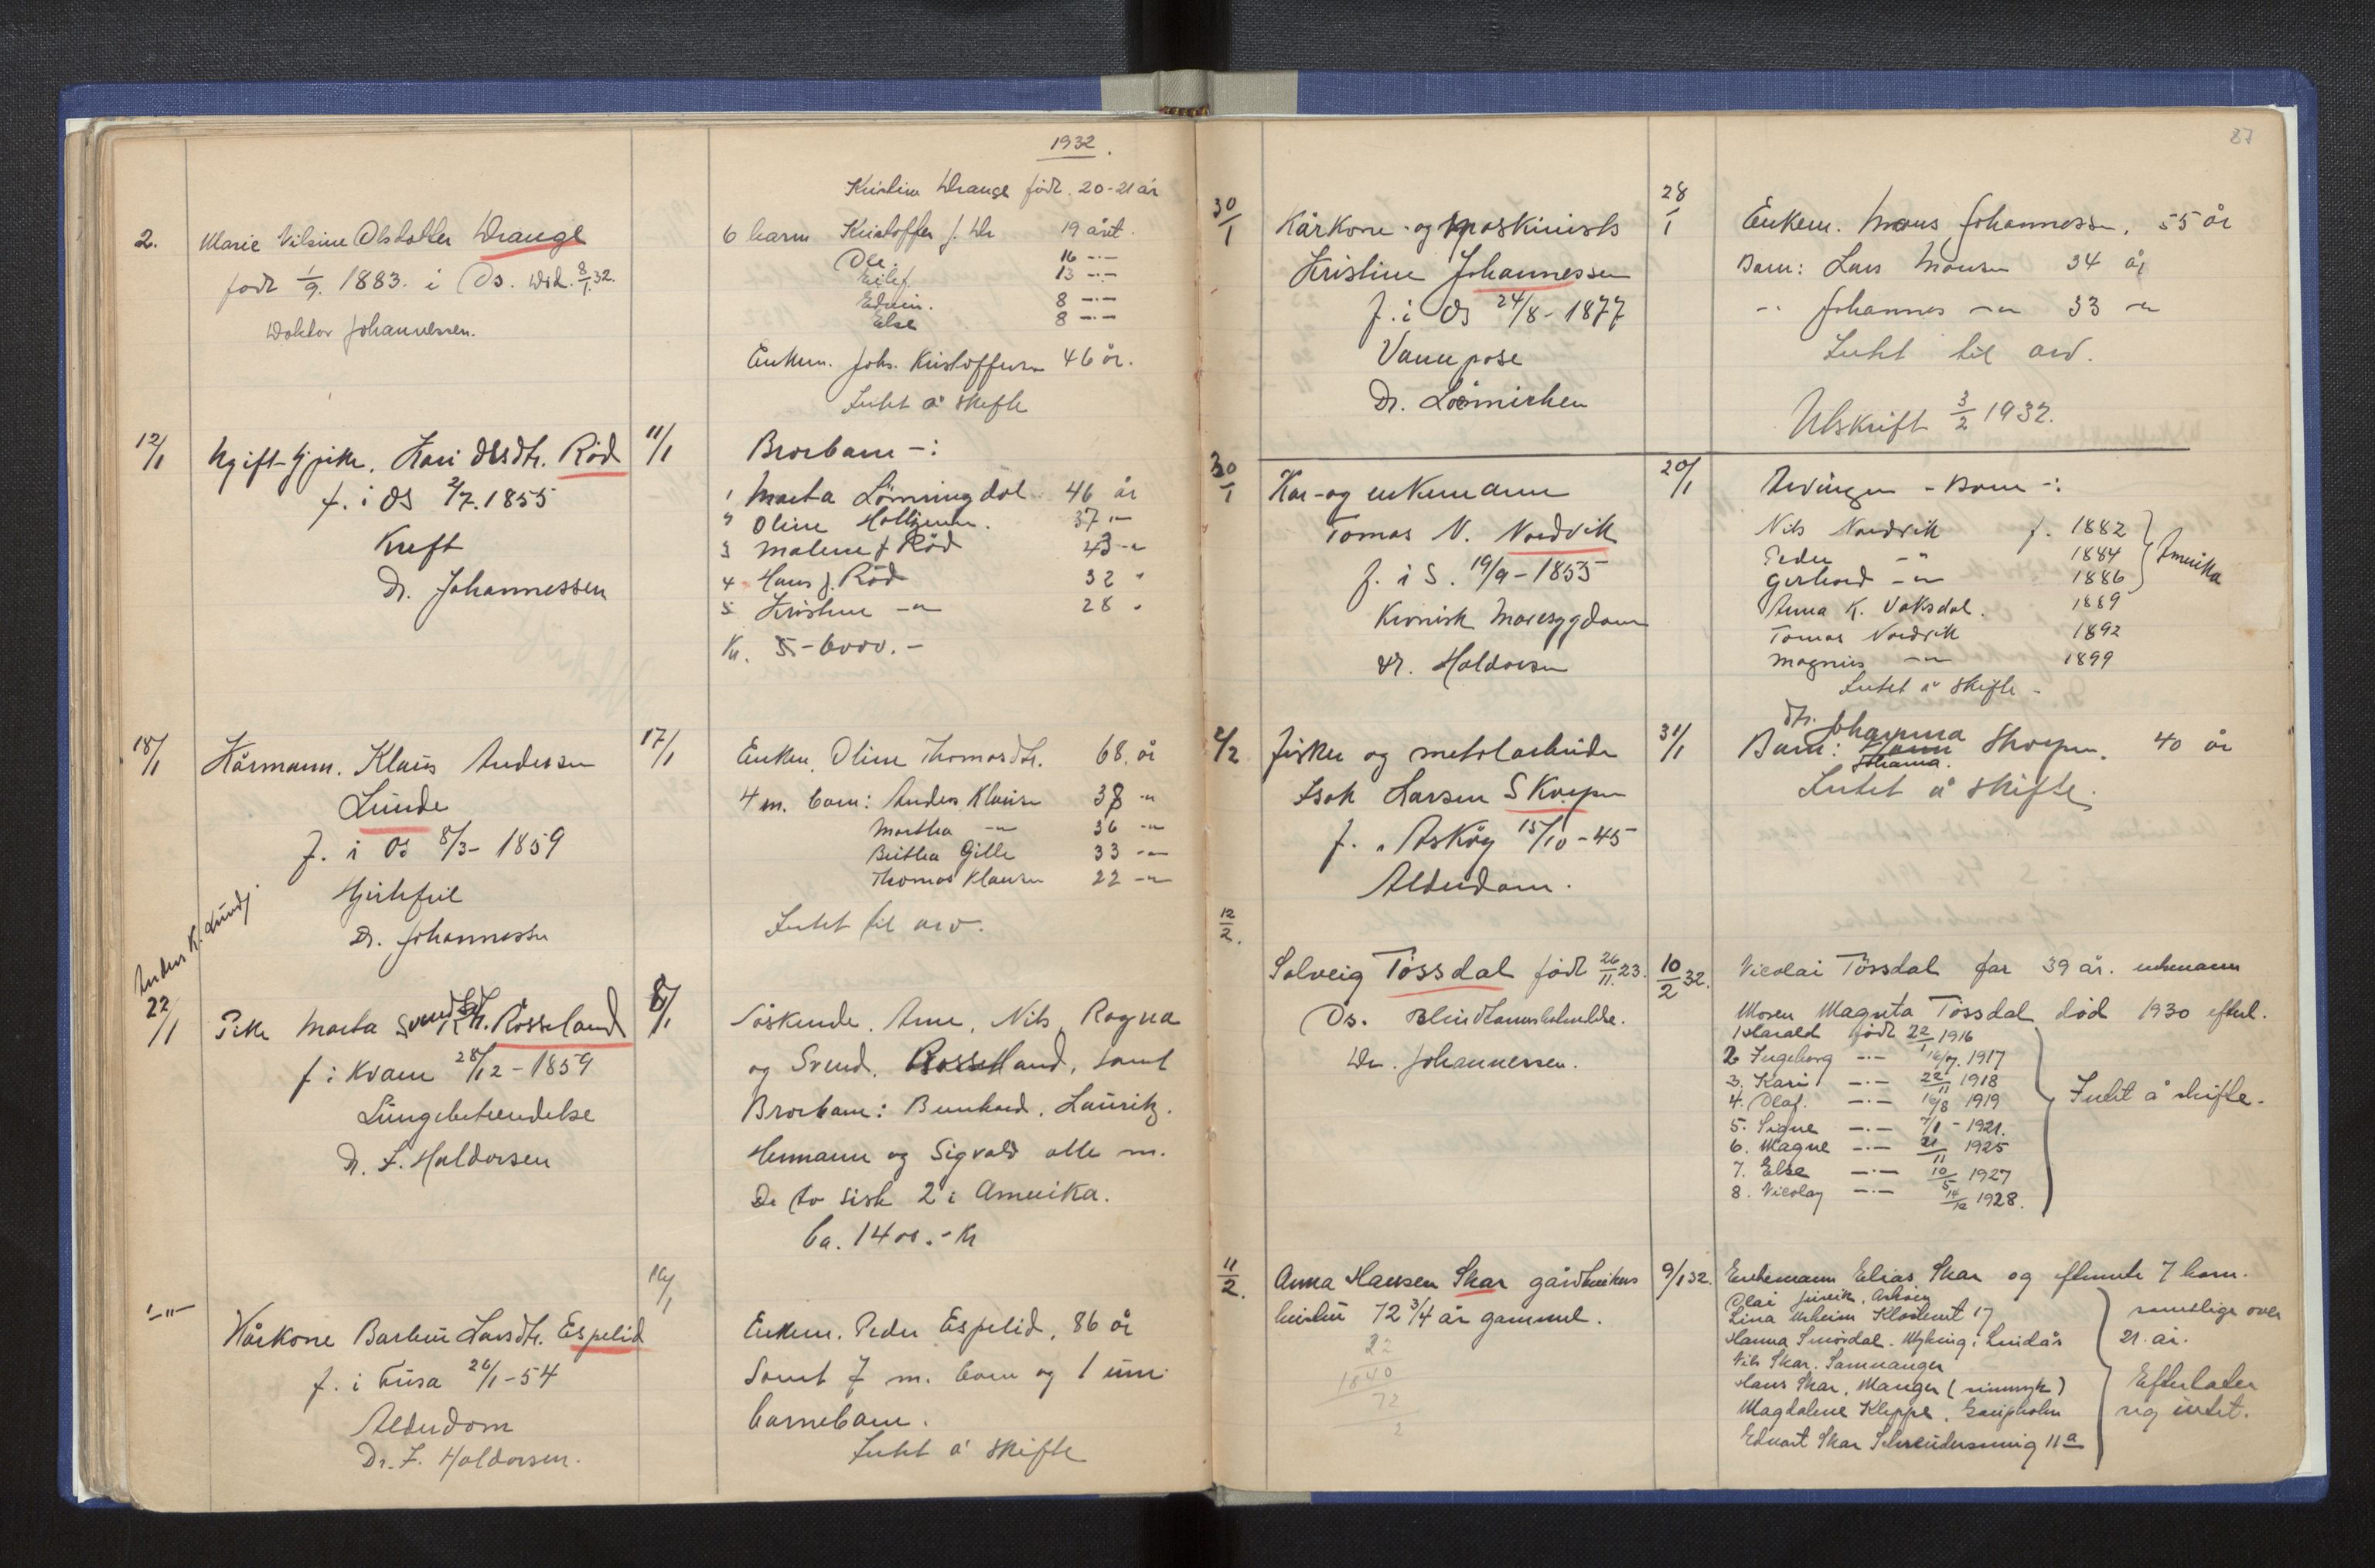 1932.
Kristine Drange född. 20-21 år
2. Marie Vilsine Olsdotter Drange
6 barn Kristoffer J. Dr 19 års.
Ole. 16 -"-
född 1/9. 1883. i Os. Död. 8/1.32.
Eilef 13 -"-
Edvin. 8 -"-
Else 8 -"-
Doktor Johannessen.
Enkem. Johs. Kristoffersen 46 år.
Intet å skifte
12/1 Ugift Pike. Kari Olsdtr. Röd 11/1
f. i Os 2/7. 1855
Kreft
Dr. Johannessen
Brorbarn -:
1 Marta Lönningdal 46 år
2 Oline 37 "-
3 Malene J Röd 43 -"
4 Hans J. Röd 32 "
5 Kristine -" 28 "
Kr. 5-6000.-
18/1 Kårmann. Klaus Andersen 17/1
Lunde
f. i Os 8/3- 1859
Hjertefeil
Dr. Johannessen
Anders K. Lunde
Enken. Oline Thomasdtr. 68 år
4 m. barn: Anders Klausen 38 -"
Martha -" 36 -"
Beritha Gille 33 -"
Thomas Klausen 22 -"
Intet til arv.
22/1 Pike Marta Svendsdtr. Rösseland 8/1
f. i Kvam 28/12 - 1859
Lungebetendelse
Dr. F. Haldorsen
Söskende. Arne, Nils, Ragna
og Svend. Rosseland, samt
Brorbarn: Bernhard. Lauritz.
Hermann og Sigvald alle m.
De to siste 2 i Amerika.
Ca. 1400.- Kr
-"- Kårkone Barbru Larsdtr. Espelid 19/1
f. i Fusa 26/1 - 54
Alderdom
Dr. F. Haldorsen.
Enkem. Peder Espelid, 86 år
Samt 7 m. barn og 1 um.
barnebarn.
Intet å skifte
87
30/1 Kårkone og maskinists 28/1
Kristine Johannessen
f. i Os 24/8 - 1877
Dr.
Enkem. Mons Johannessen, 55 år
Barn: Lars Monsen 34 år
-" Johannes -" 33 -"
Intet til arv.
Utskrift 3/2 1932.
30/1 Kår- og enkemann 20/1
Tomas N. Nordvik
f. i S. 19/9 - 1855
Kronisk Mavesygdom
Dr. Haldorsen
Arvinger - Barn -:
Nils Nordvik f. 1882
Peder -" 1884
Gerhard -" 1886
Amerika
Anna K. Vaksdal. 1889
Tomas Nordvik 1892
Magnus -" 1899
Intet å skifte -
2/2 Fisker og metalarbeider 31/1
Isak Larsen Skorpen
f. i Asköy 15/10 - 45
Alderdom.
dtr. Johanna
Barn: Skorpen. 40 år
Johanna.
Intet å skifte.
12/2.
Solveig Tössdal född 26/11.23. 10/2 32.
Os. Blindtarmsbetendelse.
Dr. Johannessen.
Nicolai Tössdal far 39 år. enkemann
Moren Magnta Tössdal död 1930 efterl.
1 Harald född 22/1 1916
2 Ingeborg -"- 16/7. 1917
3. Kari -"- 22/11 1918
4. Olaf. -"- 16/8 1919
5. Signe -"- 7/1 - 1921.
6. Magne -"- 21/11 1925
7. Else -"- 10/5 1927
8. Nicolay -"- 14/12 1928.
Intet å skifte.
11/2. Anna Hansen Skar gårdbrukers 9/1 32.
hustru 72 3/4 år gammel.
22
1840
72
2
Enkemann Elias Skar og efternevnte 7 barn.
Olai
Lina Klosteret 17
Hanna Smördal. Myking i Lindås
Nils Skar. Samnanger
Hans Skar, Manger (sinnsyk)
Magdalene Kleppe,
Edvart Skar 11a
samtlige over
21. år.
Efterlater
sig intet.